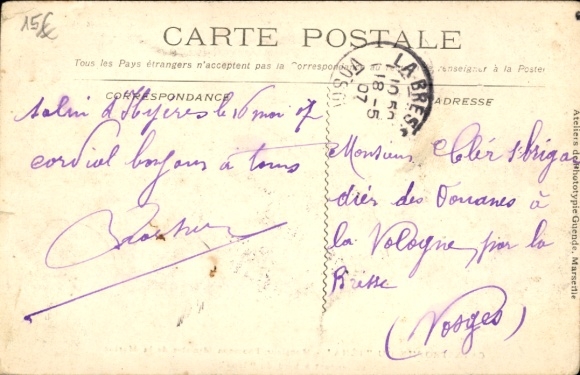 15€
CARTE POSTALE
Tous les Pays étrangers n'acceptent pas la Correspondance au se renseigner à la Poste
CORRESPONDANCE
ADRESSE
LA BRESSE
10 50
18 - 5
07
VOSGES
Salin d'Hyères le 16 mai 07
cordial bonjour à tous
Monsieur Clér s/brigadier des Douanes à
la Vologne, par la
Bresse
(Vosges)
Ateliers de Phototypie Guende, Marseille